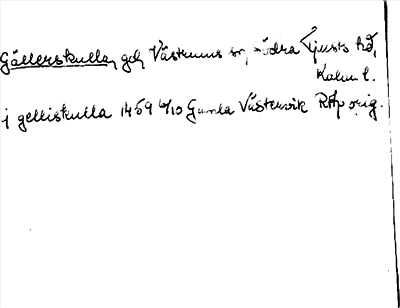 Gällerskulla, gd, Västrums sn, Södra Tjusts hd,
Kalm l.
j gelliskulla 1459 6/10 Gamla Västervik RAp orig.